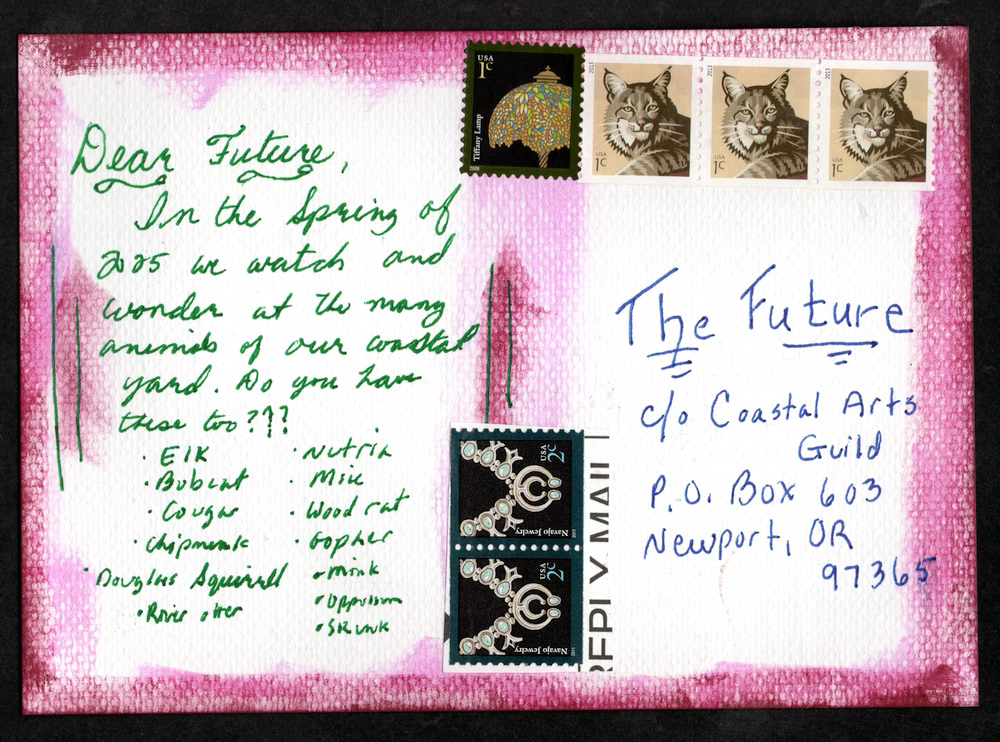 Dear Future,
In the Spring of
2025 we watch and
wonder at the many
animals of our coastal
yard. Do you have
these too???
· Elk
· Bobcat
· Cougar
· Chipmunk
· Douglas Squirrell
· River otter
· Nutria
· Mice
· Wood rat
· Gopher
· Mink
· Oppossum
· Skunk
USA
1c
Tiffany Lamp
2013
USA
1c
2013
USA
1c
2013
USA
1c
The Future
c/o Coastal Arts
Guild
P.O. Box 603
Newport, OR
97365
USA 2c
Navajo Jewelry
2011
USA 2c
Navajo Jewelry
2011